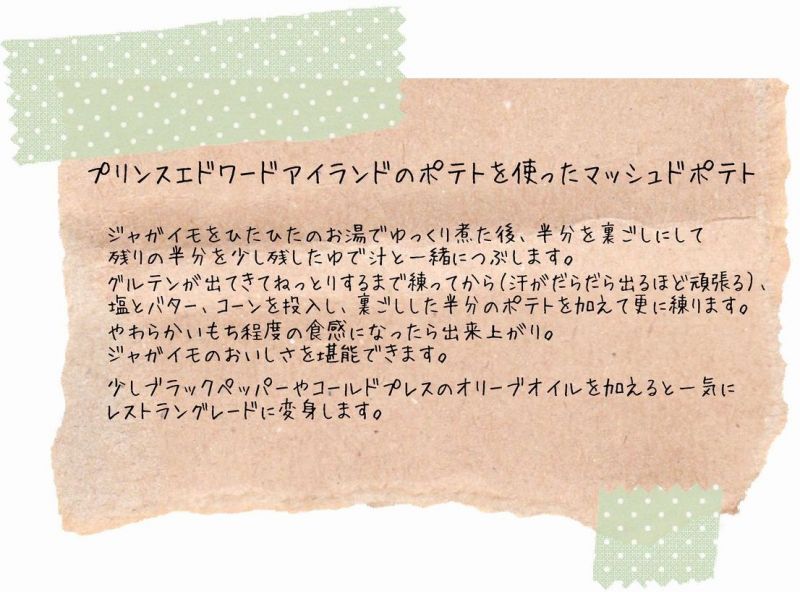 プリンスエドワードアイランドのポテトを使ったマッシュドポテト
ジャガイモをひたひたのお湯でゆっくり煮た後、半分を裏ごしにして
残りの半分を少し残したゆで汁と一緒につぶします。
グルテンが出てきてねっとりするまで練ってから(汗がだらだら出るほど頑張る)、
塩とバター、コーンを投入し、裏ごしした半分のポテトを加えて更に練ります。
やわらかいもち程度の食感になったら出来上がり。
ジャガイモのおいしさを堪能できます。
少しブラックペッパーやコールドプレスのオリーブオイルを加えると一気に
レストラングレードに変身します。